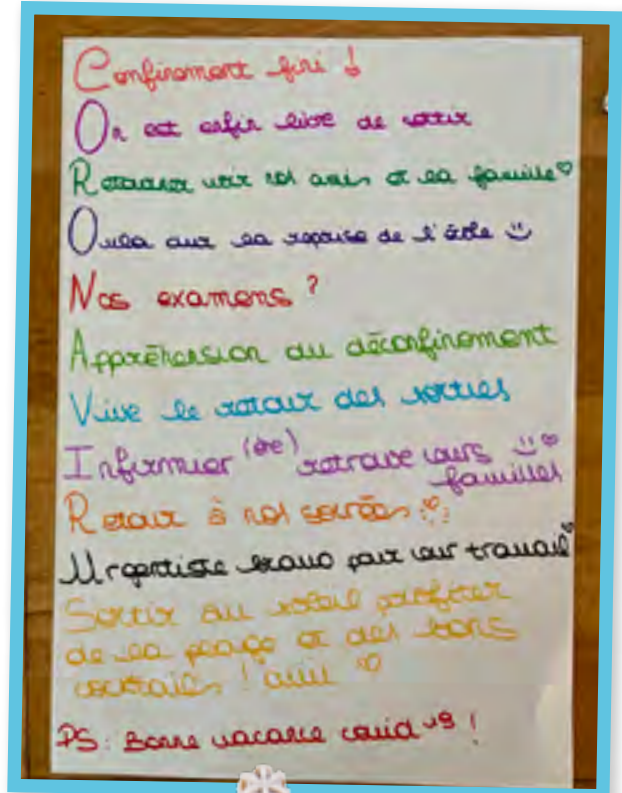 Confinement fini !
On est enfin libre de sortir
Retourner voir nos amis et la famille ♡
Oula aux la reprise de l'école
Nos examens ?
Appréhension du déconfinement
Vive le retour des sorties
Infirmier (ère) retrouve leurs
familles
Retour à nos soirées
Urgentiste bravo pour leur travail
Sortir au soleil profiter
de la plage et des bons
cocktails !
PS: Bonne vacance covid 19 !